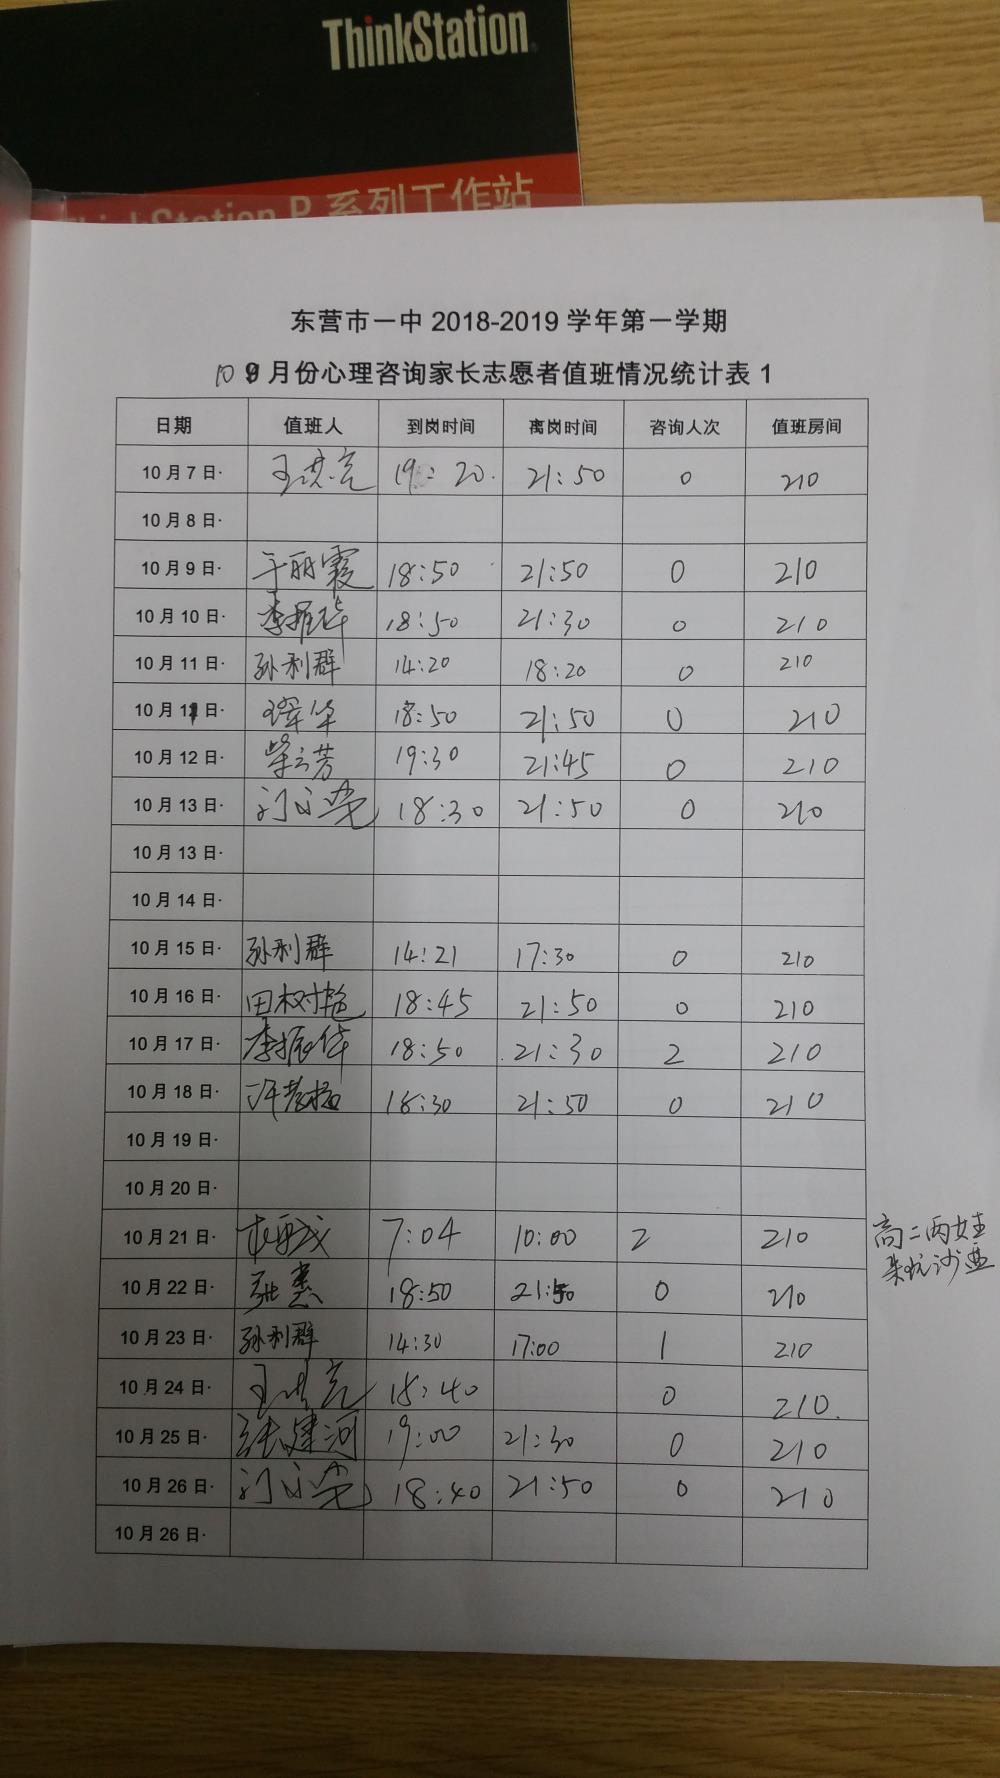 ThinkStation
ThinkStation P 系列工作站
东营市一中 2018-2019 学年第一学期
10 9 月份心理咨询家长志愿者值班情况统计表 1
日期 值班人 到岗时间 离岗时间 咨询人次 值班房间
10 月 7 日· 王洪亮 19:20. 21:50 0 210
10 月 8 日·
10 月 9 日· 于丽霞 18:50 21:50 0 210
10 月 10 日· 李振华 18:50 21:30 0 210
10 月 11 日· 孙利群 14:20 18:20 0 210
10 月 11 日· 18:50 21:50 0 210
10 月 12 日· 柴云芳 19:30 21:45 0 210
10 月 13 日· 门小荣 18:30 21:50 0 210
10 月 13 日·
10 月 14 日·
10 月 15 日· 孙利群 14:21 17:30 0 210
10 月 16 日· 田树艳 18:45 21:50 0 210
10 月 17 日· 李振华 18:50 21:30 2 210
10 月 18 日· 18:30 21:50 0 210
10 月 19 日·
10 月 20 日·
10 月 21 日· 7:04 10:00 2 210 高二两女生
10 月 22 日· 张 18:50 21:50 0 210
10 月 23 日· 孙利群 14:30 17:00 1 210
10 月 24 日· 王洪亮 18:40 0 210.
10 月 25 日· 张建河 19:00 21:30 0 210
10 月 26 日· 门小荣 18:40 21:50 0 210
10 月 26 日·